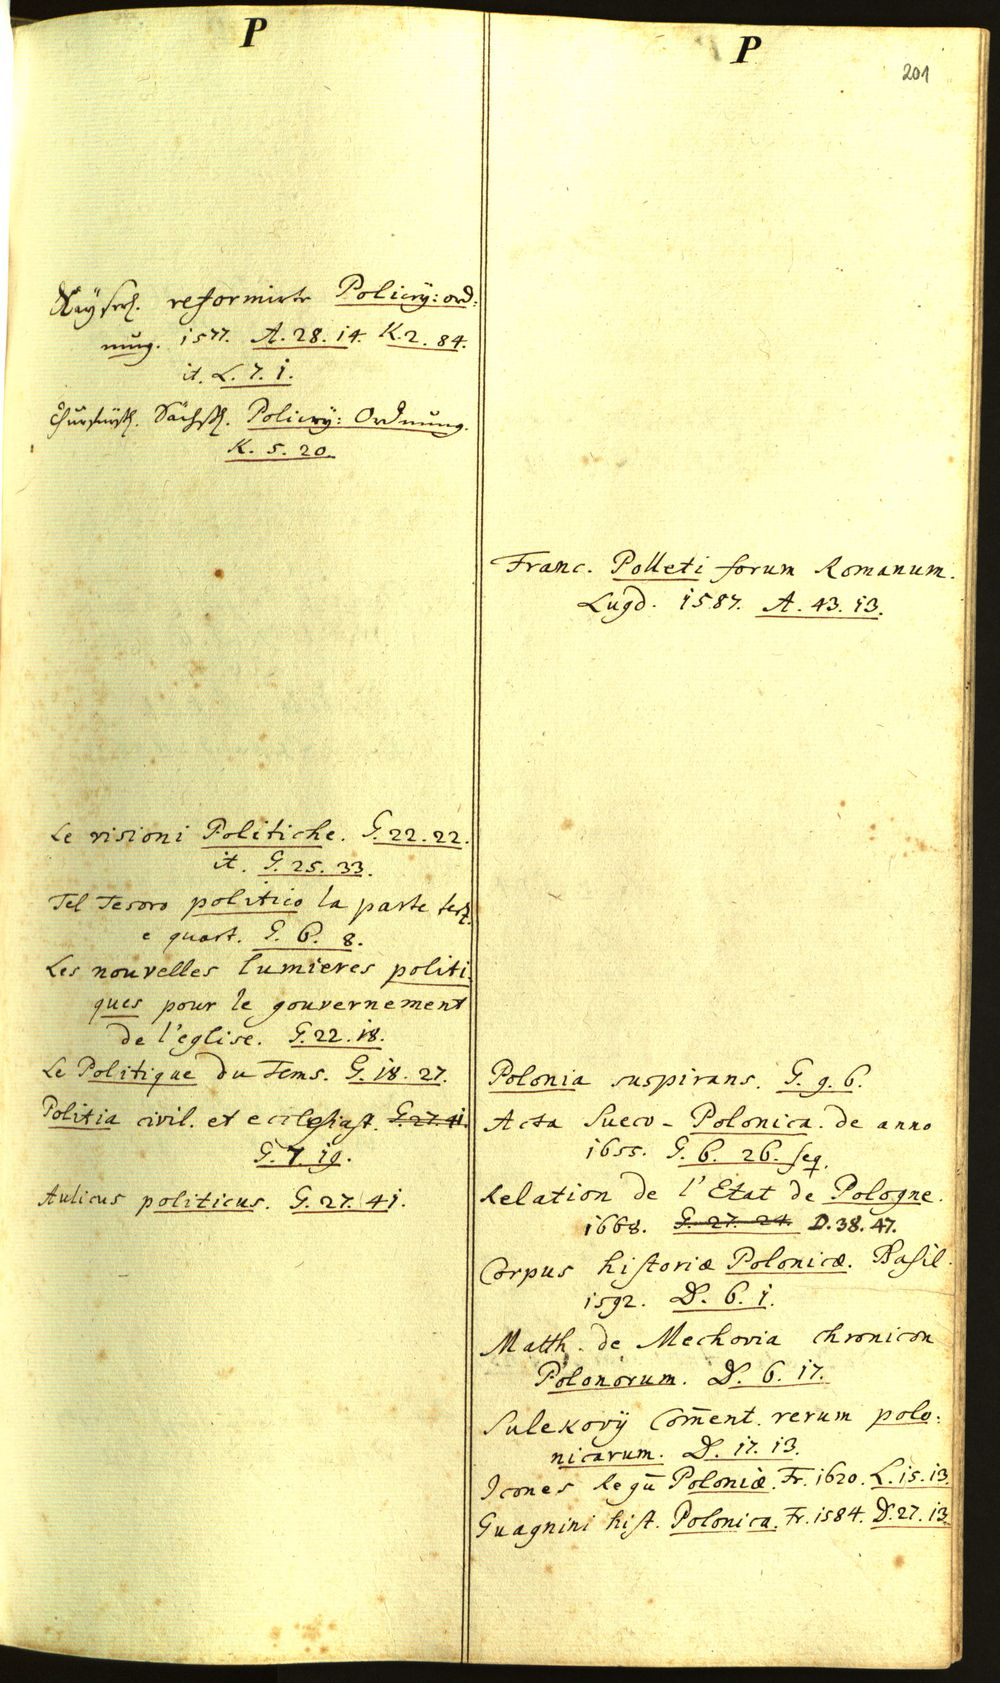 P
Kayserl. reformirte Policey: ord:
nung. 1577. A. 28. 14. K. 2. 84.
it. L. 7. 1.
Churfürstl. Sächß. Policey: Ordnung.
K. 5. 20.
Le visioni Politiche. G. 22. 22.
it. G. 25. 33.
Del Tesoro politico la parte terz.
e quart. G. 6. 8.
Les nouvelles lumieres politi:
ques pour le gouvernement
de l'eglise. G. 22. 18.
Le Politique du Tems. G. 18. 27.
Politia civil. et ecclesiast. G. 27. 41.
G. 7. 19.
Aulicus politicus. G. 27. 41.
P
201
Franc. Polleti forum Romanum.
Lugd. 1587. A. 43. 13.
Polonia suspirans. G. 9. 6.
Acta Sueco-Polonica. de anno
1655. G. 6. 26. seq.
Relation de l'Etat de Pologne.
1668. G. 27. 24. D. 38. 47.
Corpus historiæ Polonicæ. Basil.
1592. D. 6. 1.
Matth. de Mechovia chronicon
Polonorum. D. 6. 17.
Sulekovÿ Com̄ent. rerum polo:
nicarum. D. 17. 13.
Icones Regū Poloniæ. Fr. 1620. L. 15. 13.
Guagnini hist. Polonica. Fr. 1584. D. 27. 13.